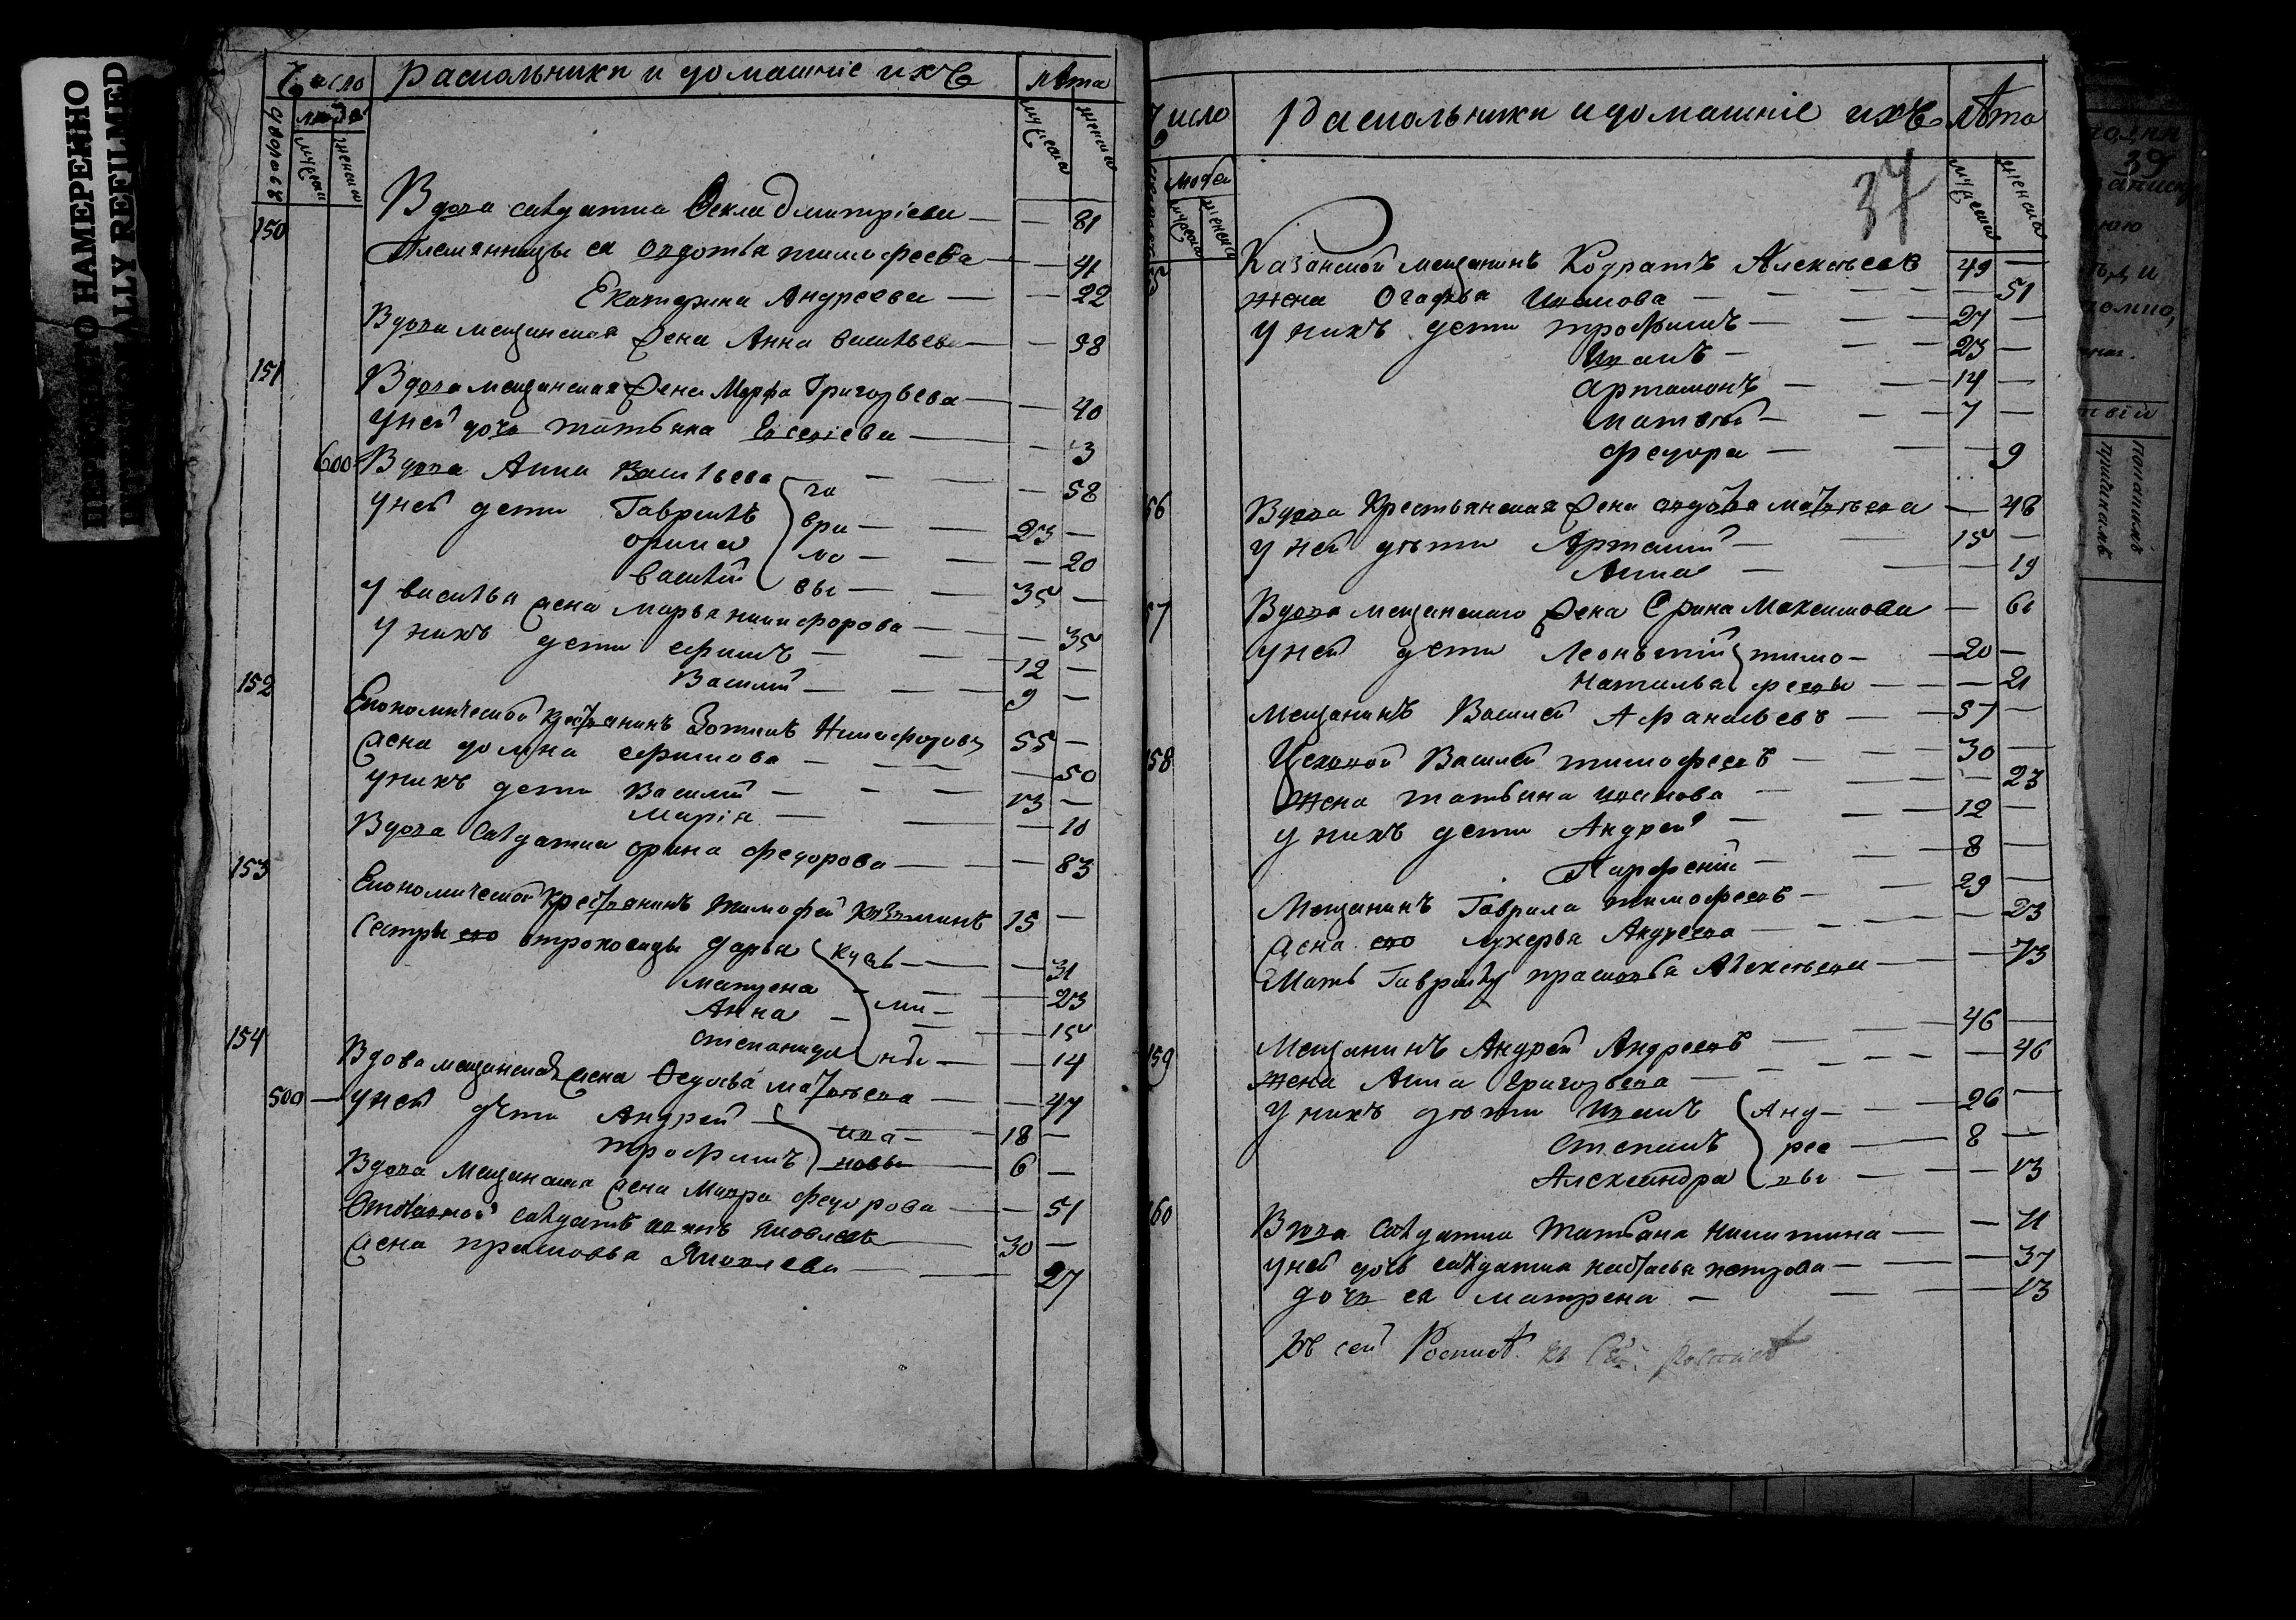 ПЕРЕСНЯТО НАМЕРЕННО
INTENTIONALLY REFILMED
Число
Раскольники и домашніе ихъ
лѣта
дворовъ
людей
мужеска
женска
мужеска
женска
150
Вдова салдатка Ѳекла Дмитріева — — 81
Племянницы ея Овдотья тимофеева — — 41
Екатерина Андреева — — 22
Вдова мещанская жена Анна васильева — — 38
151
Вдова мещанская жена Марфа Григорьева — — 40
у ней дочь татьяна Евсеніева — — 3
600 Вдова Анна Васильева — — 58
у ней дети Гаврилъ га 23 —
орина ври — — 20
василій ло вы — 35 —
у василья жена марья никифорова — — 35
у нихъ дети ефимъ — 12 —
Василій — 9 —
152
Економической крестьянинъ Зотикъ Никифоровъ 55 —
жена домна ефимова — — 50
у нихъ дети Василій — 13 —
Марія — — 10
Вдова Салдатка орина федорова — — 83
153
Економической крестьянинъ тимофей кузминъ 15 —
Сестры его отроковицы дарья кузь — — 31
матрена — — 23
Анна — ми — — 15
степанида ны — — 14
154
Вдова мещанская жена Ѳедосья матвѣева — — 47
500 — у ней дѣти Андрей — ива — 18 —
трофимъ новы — 6 —
Вдова мещанская жена Мавра федорова — — 51
Отставной салдатъ иванъ яковлевъ 30 —
жена прасковья Яковлева — — 27
Число
Раскольники и домашніе ихъ
лѣта
людей
мужеска
женска
мужеска
женска
37
Казанской мещанинъ Кодратъ Алексѣевъ 49 —
жена Огафья Иванова — — 51
у нихъ дети трофимъ — 27 —
Иванъ — 23 —
артамонъ — 14 —
матвѣй — 7 —
федора — — 9
56
Вдова крестьянская жена овдотья матвѣева — 48
у ней дѣти Артемій — 15 —
Анна — — 19
57
Вдова мещанскаго жена Ерина Максимова — 61
у ней дети Леонътій тимо — 20 —
наталья феевы — — 21
мещанинъ Василей Афанасьевъ — 57 —
158
Цеховой Василей тимофеевъ — 30 —
жена татьяна иванова — — 23
у нихъ дети Андрей — 12 —
Парфеній — 8 —
мещанинъ Гаврила тимофеевъ — 29 —
жена его лукерья Андреева — — 23
Мать Гаврилы прасковья Алексѣева — — 73
159
мещанинъ Андрей Андреевъ — 46 —
жена Анна Григорьева — — 46
у нихъ дѣти Иванъ Анд — 26 —
Степанъ рее — 8 —
Александра вы — — 13
160
Вдова Салдатка татьяна никитина — — 71
у ней дочь салдатка настасья петрова — — 37
дочь ея матрена — — 13
въ сей Росписѣ
39